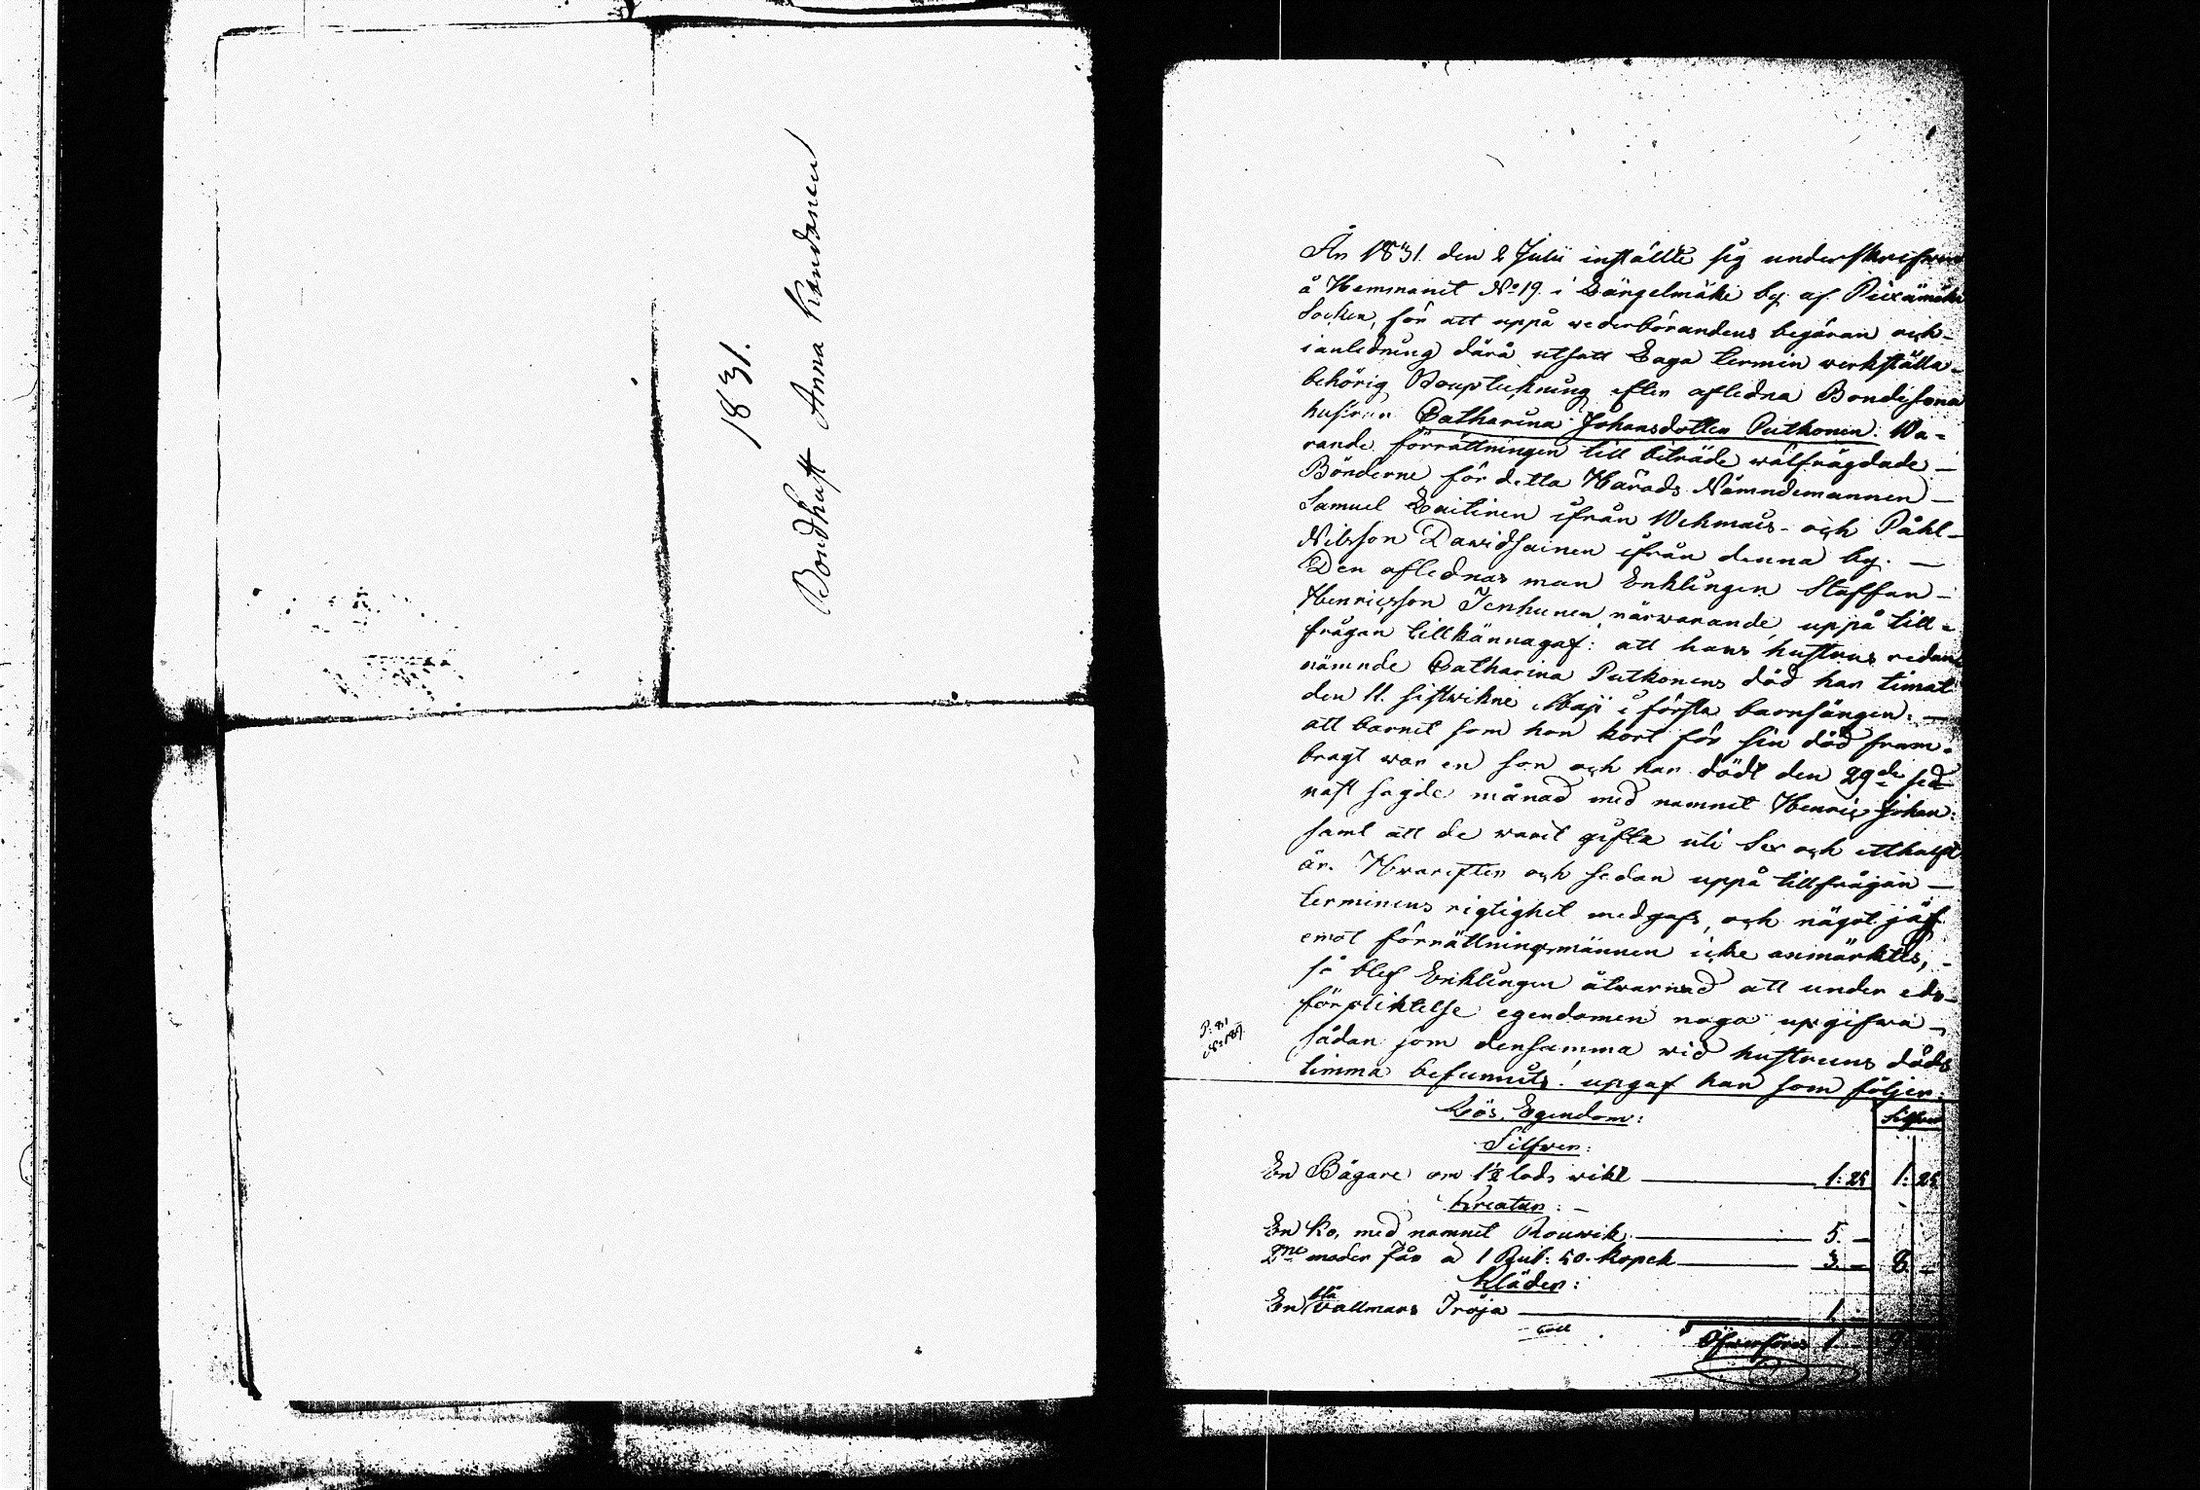 1831.
Bondhust Anna Kandanen
År 1831. den 2 Julii inställte sig underskrifwen
å Hemmanet No 19. i Längelmäki by af Piexämäki
Socken, för att uppå wederbörandens begäran och
i anledning därå utsatt Laga termin werkställa
behörig Bouptekning efter afledna Bondesona
hustrun Catharina Johansdotter Putkonen. Wa-
rande förrättningen till biträde wälfrägdade —
Bönderne för detta Härads Nämndemannen —
Samuel Laitinen ifrån Wehmais och Påhl
Nilsson Dawidsainen ifrån denna by. —
Den aflednas man Enklingen Staffan —
Henricsson Ienhunen, närwarande, uppå till-
frågan tillkännagaf: att hans hustrus redan
nämnde Catharina Putkonens död har timat
den 11. sistwikne Maji i första barnsängen. —
att barnet som hon kort för sin död fram-
bragt war en son och har dödt den 29de sed
nast sagde månad med namnet Henric Johan:
samt att de warit gifta uti Sex och etthalft
år. Hwarefter och sedan uppå tillfrågan —
terminens rigtighet medgafs, och något jäf
emot förrättningsmännen icke anmärktes, —
så blef Enklingen åtwarnad att under eds-
förpliktelse egendomen noga upgifwa —
sådan som densamma wid hustruns döds
timma befunnits. upgaf han som följer:
Lös Egendom: Silfwer
Silfwer:
En Bägare om 1½ lods wikt — 1:25 1:25
Kreatur: —
En Ko, med namnet Rouwik — 5. —
2ne moder får a 1 Rub: 50. Kopek — 3. — 8. —
Kläder:
En blå wallmars Tröja — 1. —
Öfwerföres 1